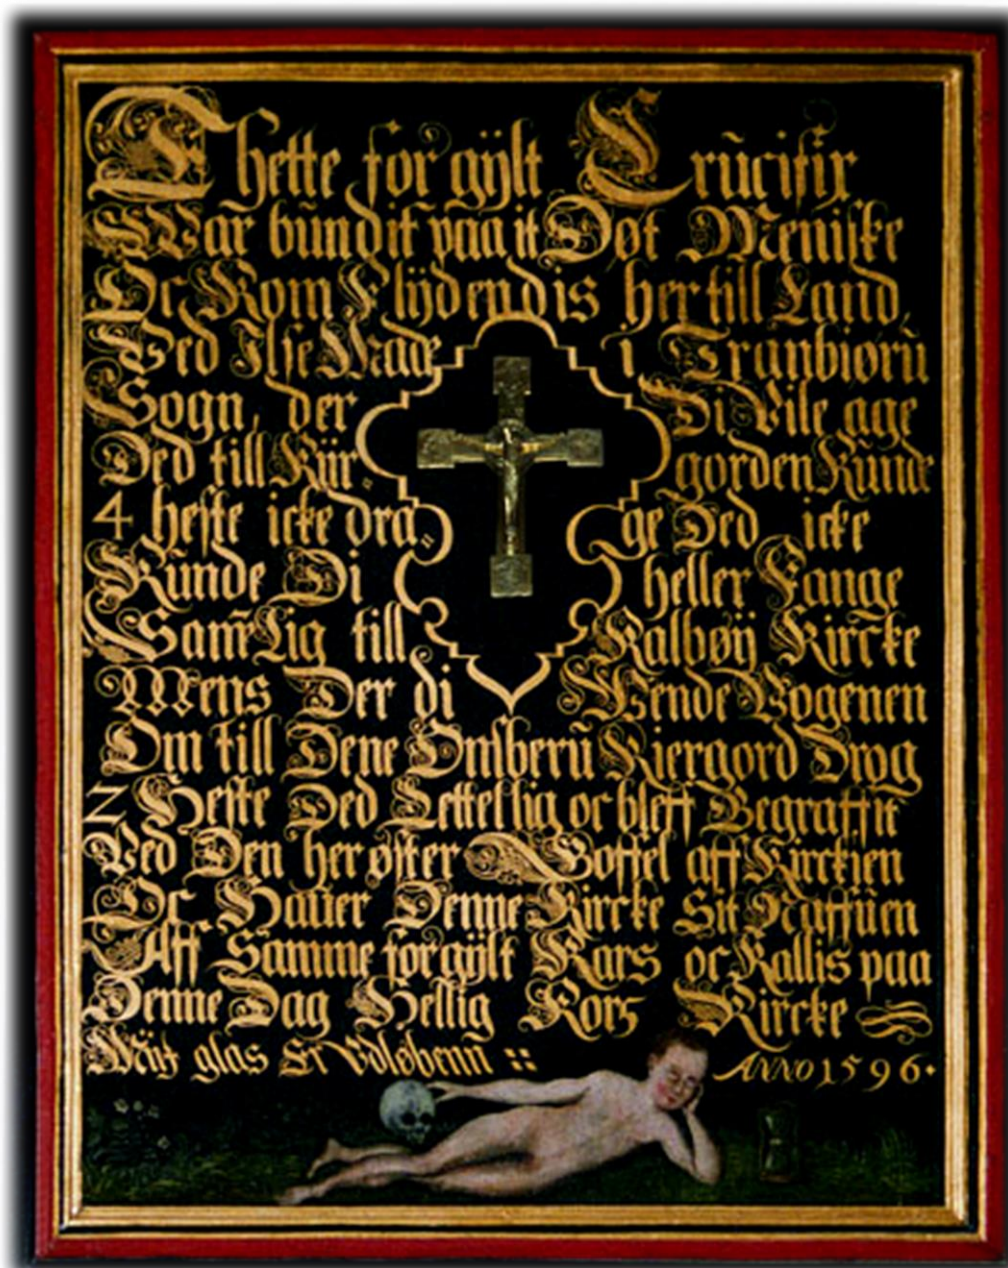 Thette for gÿlt Crŭcifix
War bŭndit paa it Døt Meniske
Oc Kom Flÿdendis her till Land
Ved Ilse Made i Tranbiørŭ
Sogn, der Di Vile age
Ded till Kür gorden Kŭnde
4 heste icke dra ge Ded icke
Kŭnde Di heller Fange
Sam̃Lig till Kalbøÿ Kircke
Mens Der di Wende Vogenen
Om till Dene Onsberŭ Kiergord Drog
2 Heste Ded Lettellig oc bleff Begraffit
Ved Den her øster Goffel aff Kirckien
Oc Hauer Denne Kircke Sit Naffŭen
Aff Samme forgÿlt Kars oc Kallis paa
Denne Dag Hellig Kors Kircke
Mit glas Er Vdløbenn :: ANNO 1596.